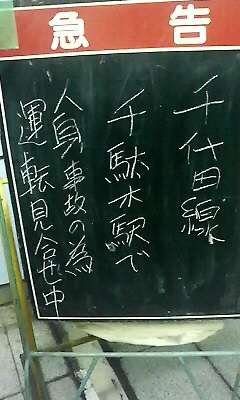 急告
千代田線
千駄木駅で
人身事故の為
運転見合せ中